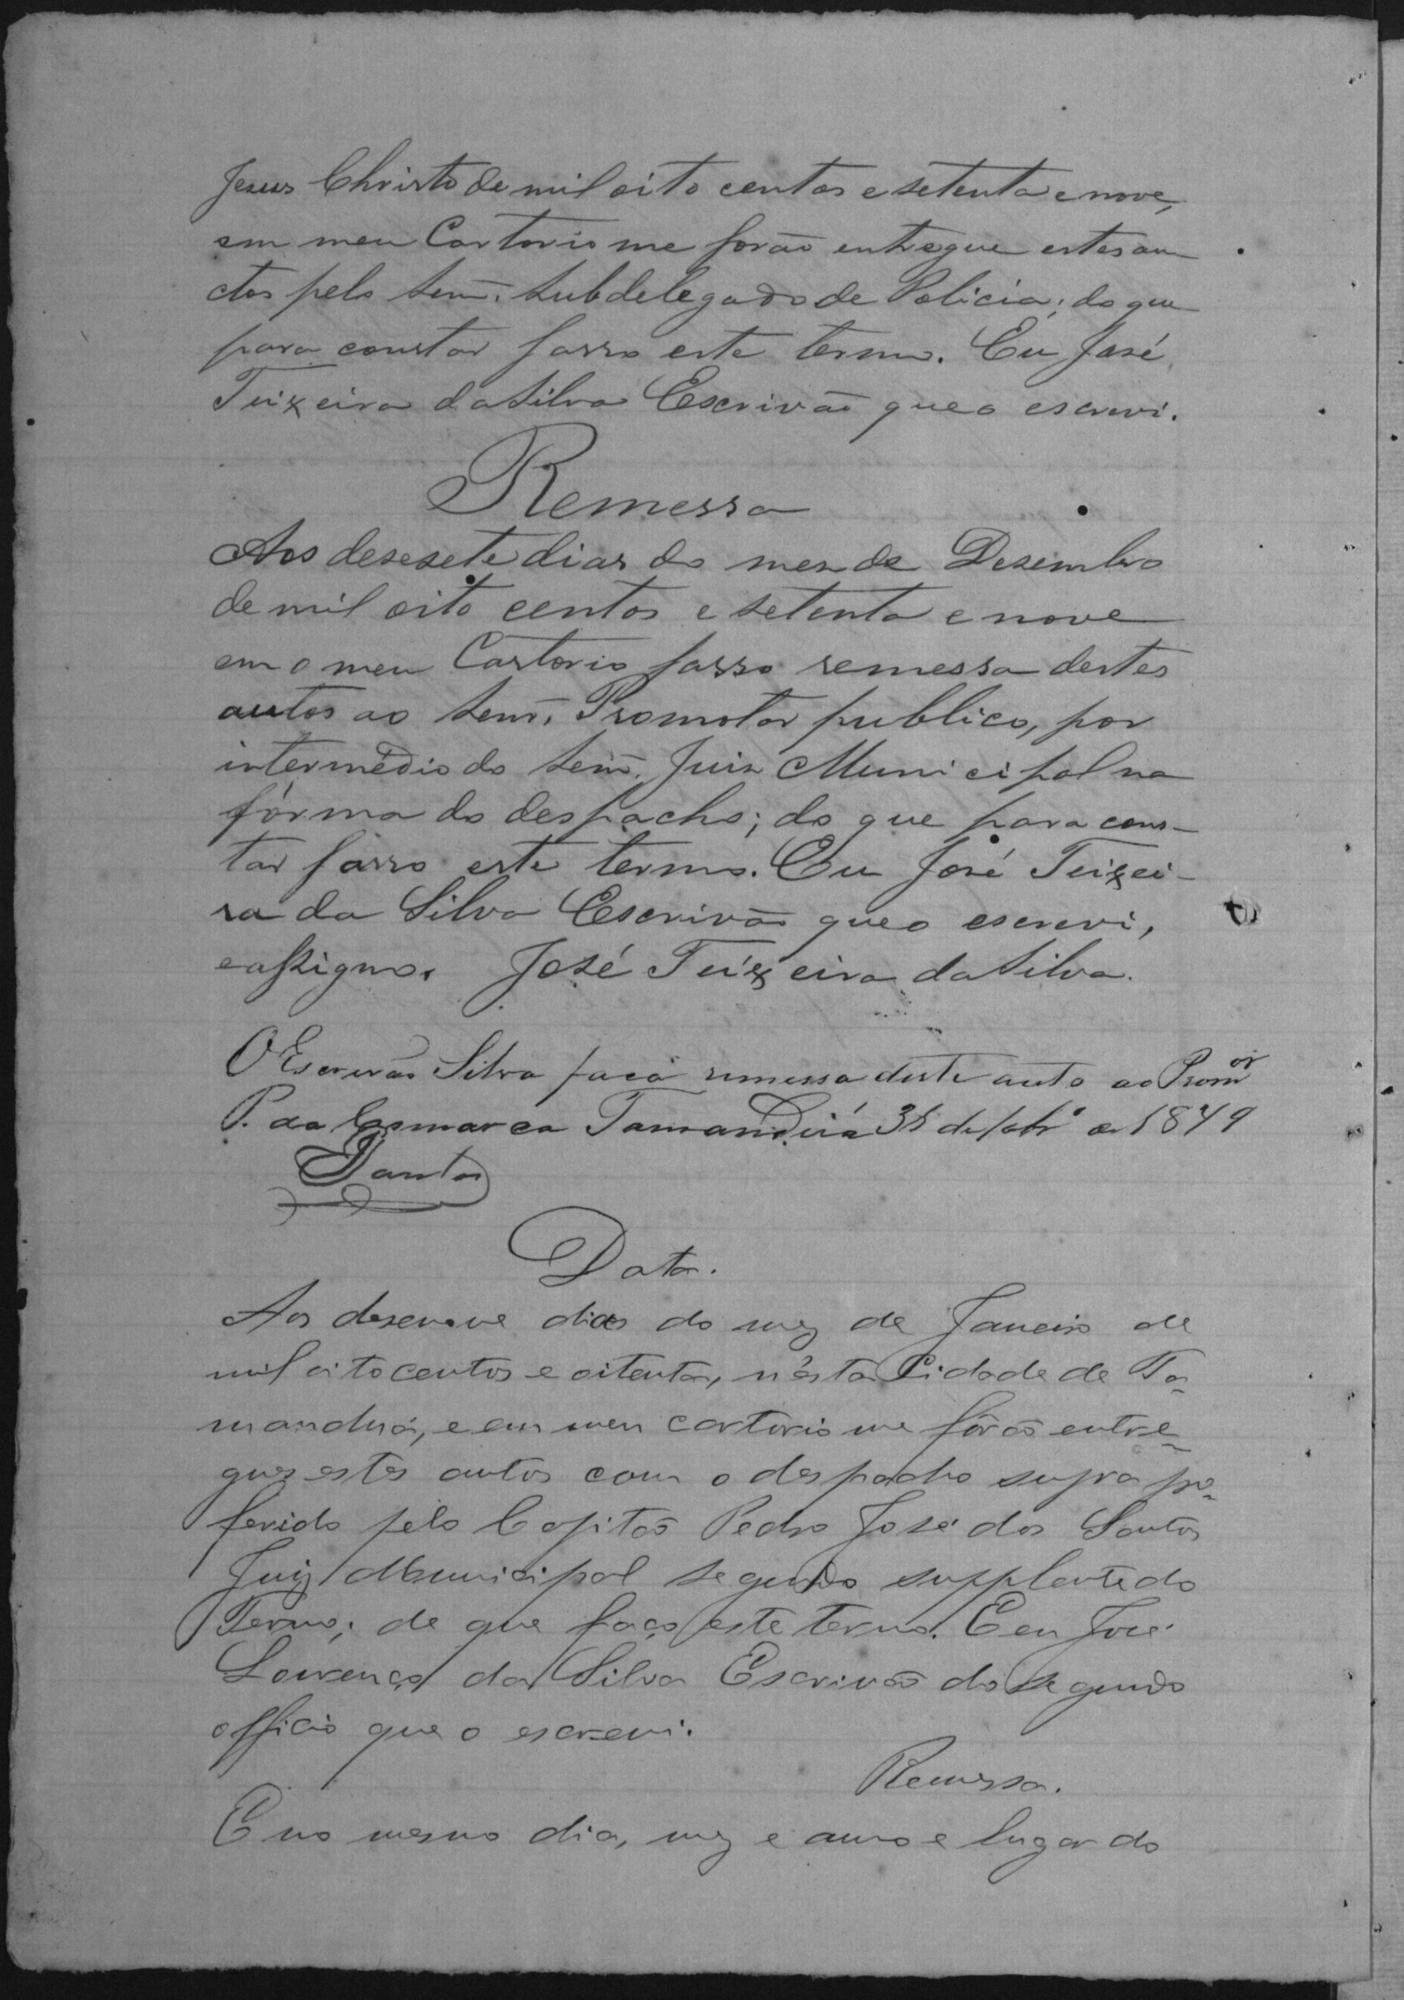 Jesus Christo de mil oito centos e setenta e nove,
em meu Cartorio me forão entregue estes au
ctos pelo Senr. Subdelegado de Policia; do que
para constar fasso este termo. Eu José
Teixeira da Silva Escrivão que o escrevi.
Remessa
Aos desesete dias do mes de Desembro
de mil oito centos e setenta e nove
em o meu Cartorio fasso remessa destes
autos ao Senr. Promotor publico, por
intermédio do Senr. Juis Municipal na
fórma do despacho; do que para cons-
tar fasso este termo. Eu José Teixei-
ra da Silva Escrivão que o escrevi,
e assigno. José Teixeira da Silva.
O Escrivão Silva faça remessa deste auto ao Promor
P. da Comarca Tamanduá 31 de 1879
Santos
Data.
Aos desenove dias do mez de Janeiro de
mil oitocentos e oitenta, n'ésta Cidade de Ta-
manduá, e em meu cartorio me fôrão entre-
gues estes autos com o despacho supra pro-
ferido pelo Capitão Pedro José dos Santos
Juiz Municipal segundo supplente do
Termo; de que faço este termo. E eu José
Lourenço da Silva Escrivão do segundo
officio que o escrevi.
Remessa.
E no mesmo dia, mez e anno e lugar do